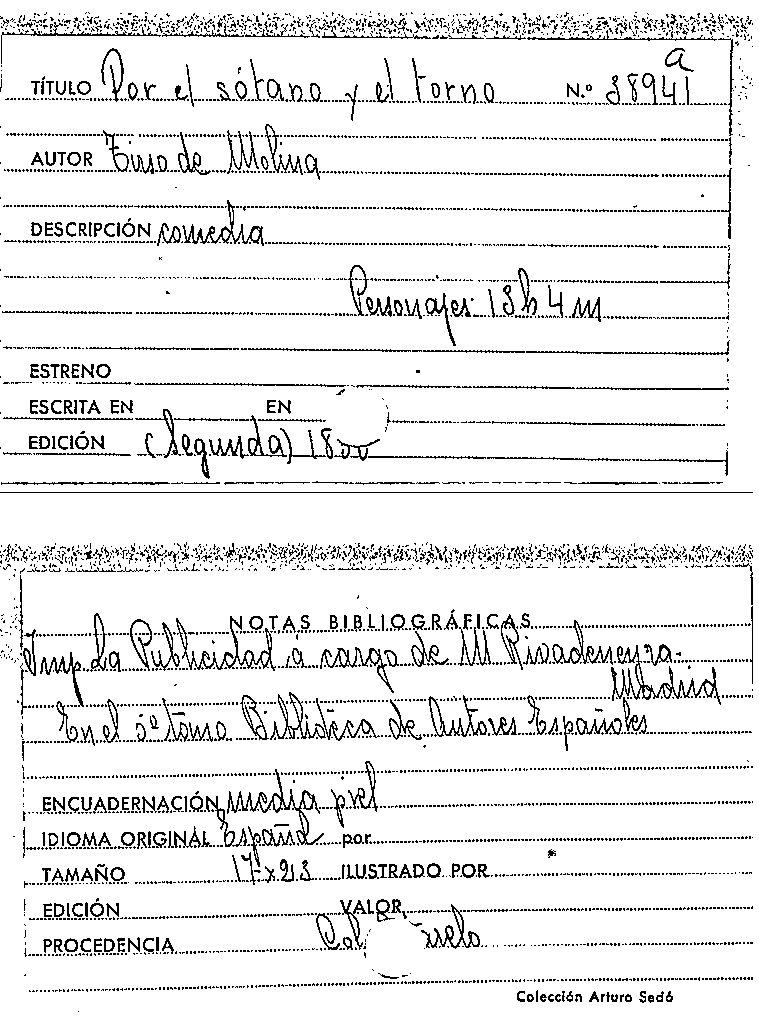 a
TÍTULO Por el sótano y el torno N.º 38941
AUTOR Tirso de Molina
DESCRIPCIÓN comedia
Personajes: 13 h 4 m
ESTRENO
ESCRITA EN EN
EDICIÓN (Segunda) 18
NOTAS BIBLIOGRÁFICAS
Imp La Publicidad á cargo de M Rivadeneyra-
Madrid
En el 5º tomo Biblioteca de Autores Españoles
ENCUADERNACIÓN media piel
IDIOMA ORIGINAL Español por
TAMAÑO 17x ILUSTRADO POR
EDICIÓN VALOR
PROCEDENCIA
Colección Arturo Sedó